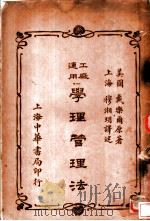 美國 戴樂爾原著
上海 穆湘玥譯述
工廠
適用
學理管理法
上海中華書局印行